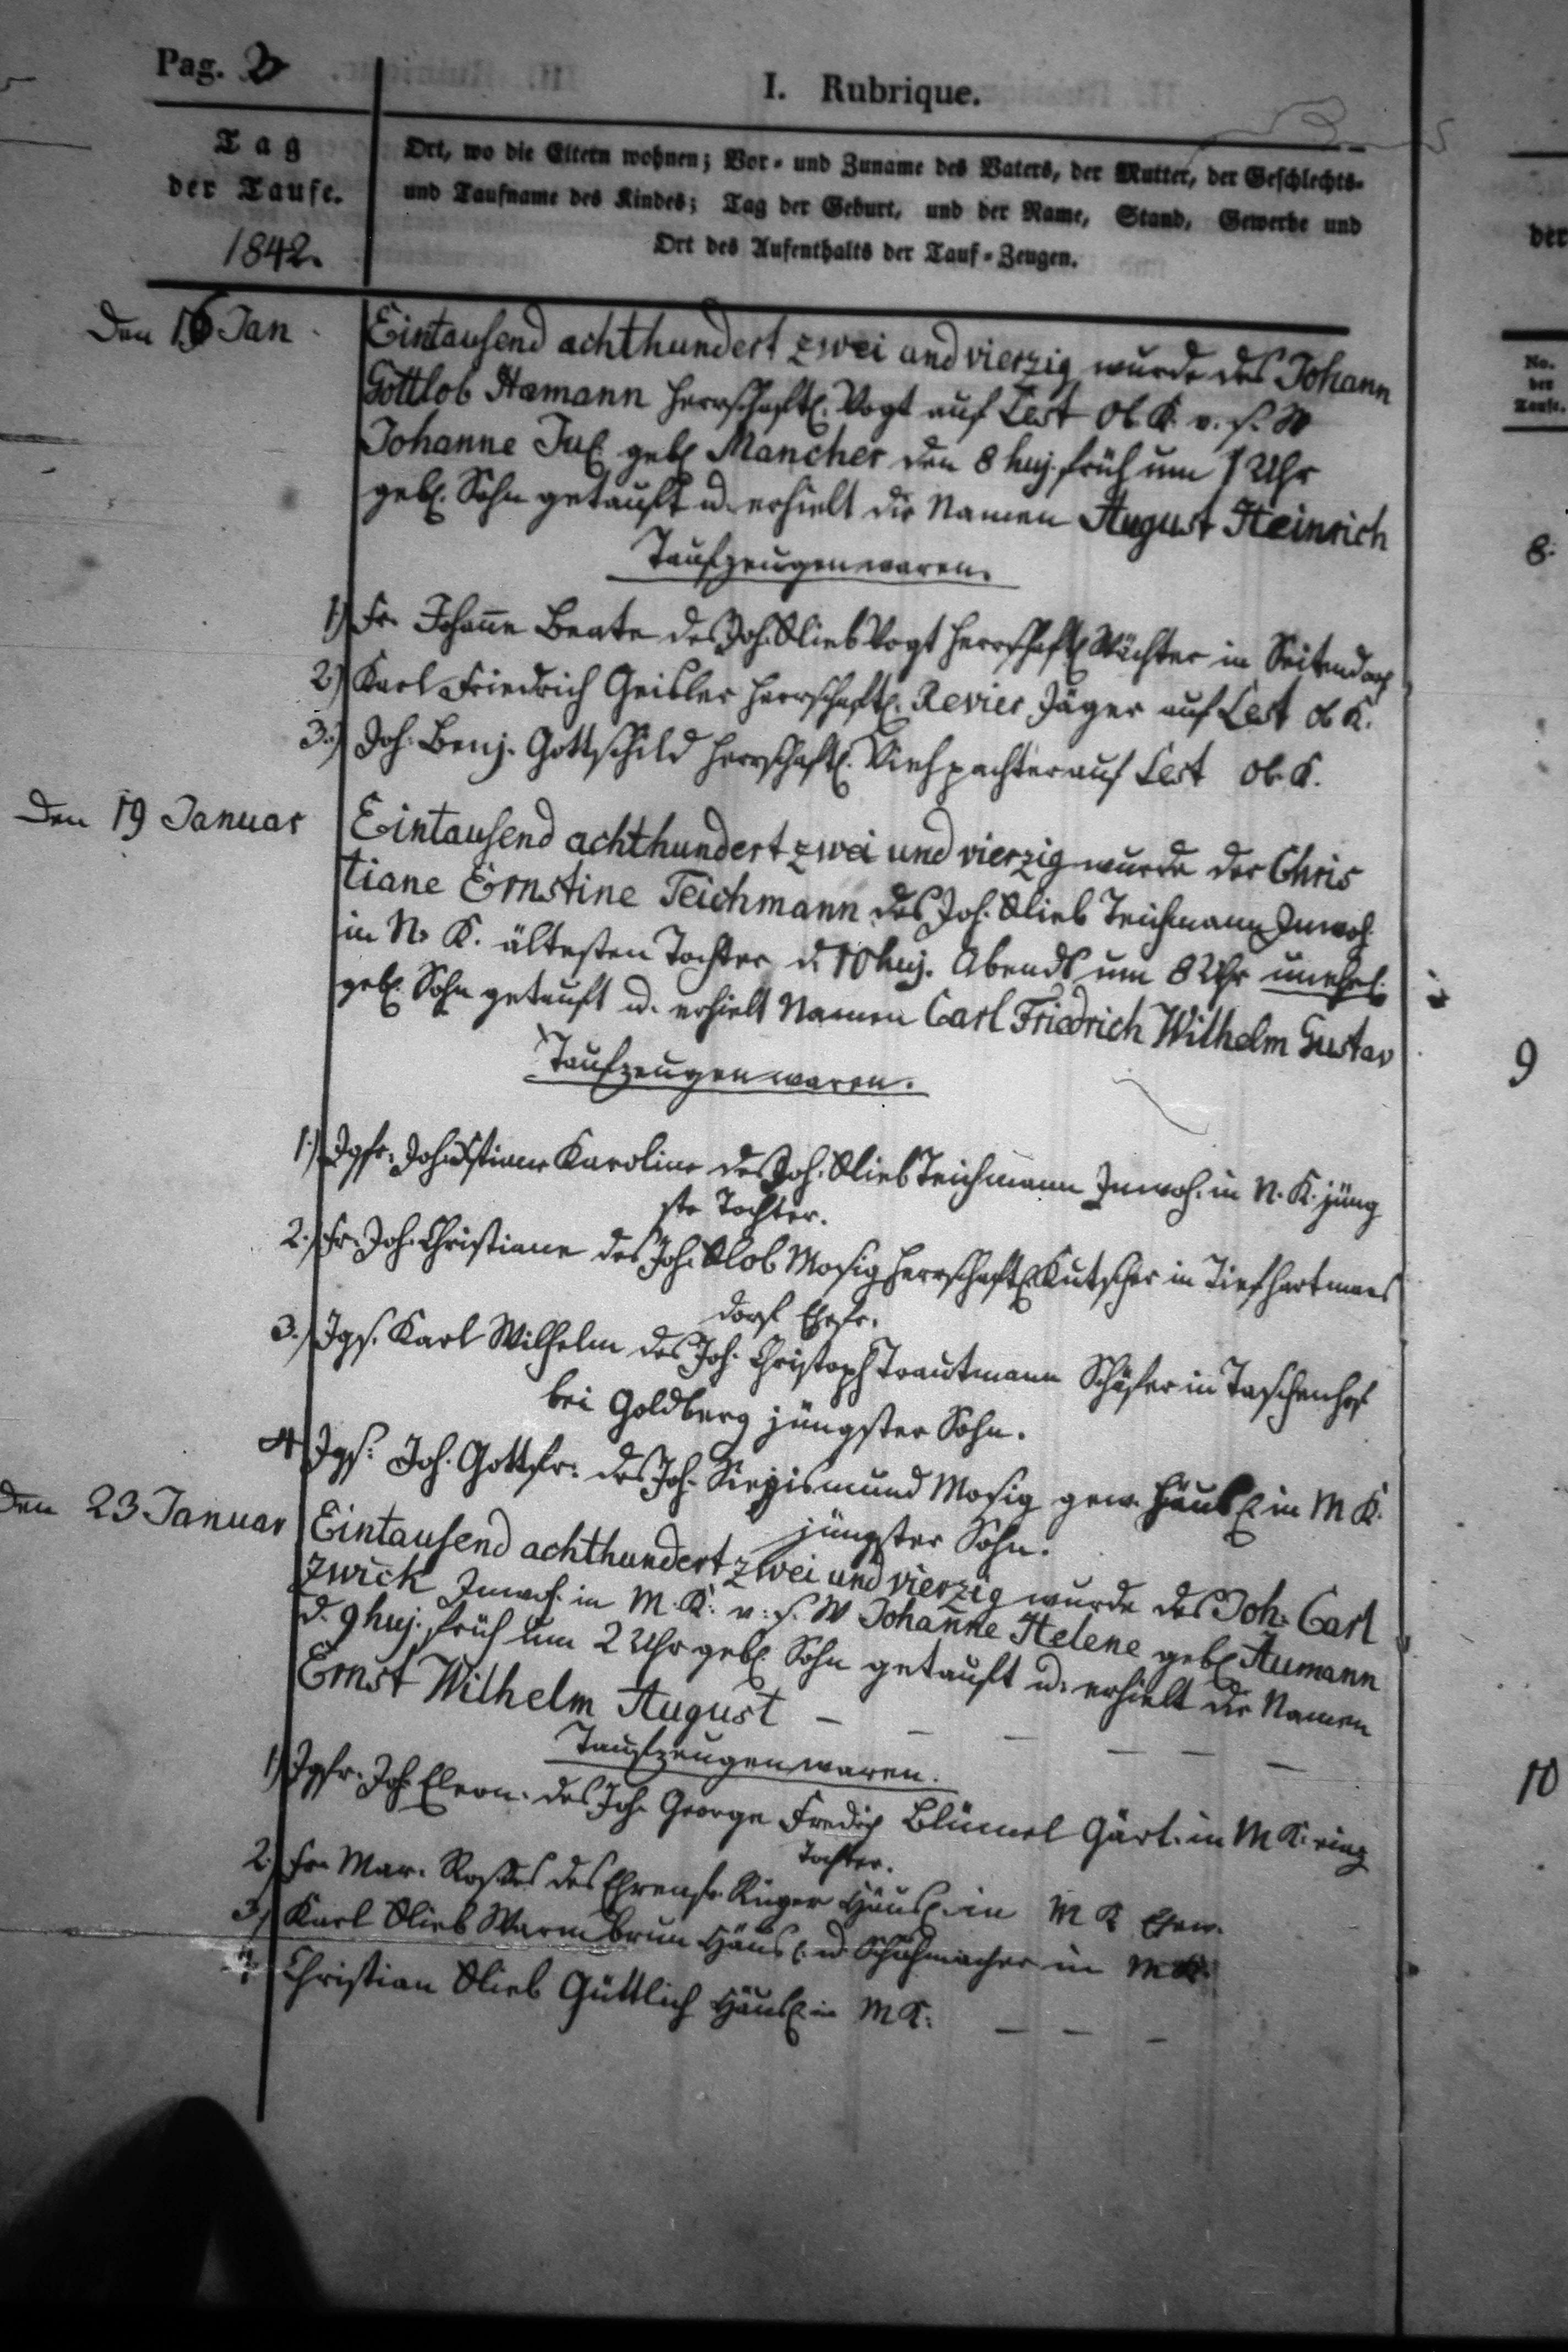 Pag. 2
I. Rubrique.
Tag
der Taufe.
1842.
Ort, wo die Eltern wohnen; Vor- und Zuname des Vaters, der Mutter, der Geschlechts-
und Taufname des Kindes; Tag der Geburt, und der Name, Stand, Gewerbe und
Ort des Aufenthalts der Tauf-Zeugen.
No.
der
Taufe.
Den 16 Jan
Eintausend achthundert zwei und vierzig wurde des Johann
Gottlob Hamann herrschaftl. Vogt auf Lest Ob. K. v. s. W
Johanne Jul. geb. Mancher den 8 huj. früh um 1 Uhr
geb. Sohn getauft u. erhielt die Namen August Heinrich
8.
Taufzeugen waren.
1) Fr. Johanne Beate des Joh. Glieb Vogt herrschaftl. Wächter in Seitendorf
2) Karl Friedrich Geisler herrschaftl. Revier Jäger auf Lest Ob K.
3.) Joh. Benj. Gottschild herrschaftl. Viehpachter auf Lest Ob. K.
Den 19 Januar
Eintausend achthundert zwei und vierzig wurde der Chris
tiane Ernstine Teichmann des Joh. Glieb Teichmann Inwoh.
in N. K. ältesten Tochter d. 10 huj. Abends um 8 Uhr unehel.
geb. Sohn getauft u. erhielt Namen Carl Friedrich Wilhelm Gustav
9
Taufzeugen waren.
1.) Jgfr. Karoline des Joh. Glieb Teichmann Inwoh. in N. K. jüng
ste Tochter.
2.) Fr. Joh. Christiane des Joh. Glob Mosig herrschaftl. Kutscher in Tiefhartmans
dorf Ehefr.
3.) Jgs. Karl Wilhelm des Joh. Christoph Trautmann Schäfer in Taschenhof
bei Goldberg jüngster Sohn.
4 Jgs. Joh. Gottfr. des Joh. Siegismund Mosig gew. Häusl. in M K.
jüngster Sohn.
Den 23 Januar
Eintausend achthundert zwei und vierzig wurde des Joh. Carl
Zwick Inwoh. in M. K. v. s. W Johanne Helene geb. Aumann
d. 9 huj. früh um 2 Uhr geb. Sohn getauft u. erhielt die Namen
Ernst Wilhelm August – – – – – –
10
Taufzeugen waren.
1) Jgfr. Joh. Eleon. des Joh. George Fredrich Blümel Gärt. in M K. einz
Tochter.
2. Fr. Mar. des Ehrenfr. Häusl. in M K Ehew.
3) Karl Glieb Warmbrun Häusl. u. Schuhmacher in M K.
4. Christian Glieb Güttlich Häusl. in M K. – – –